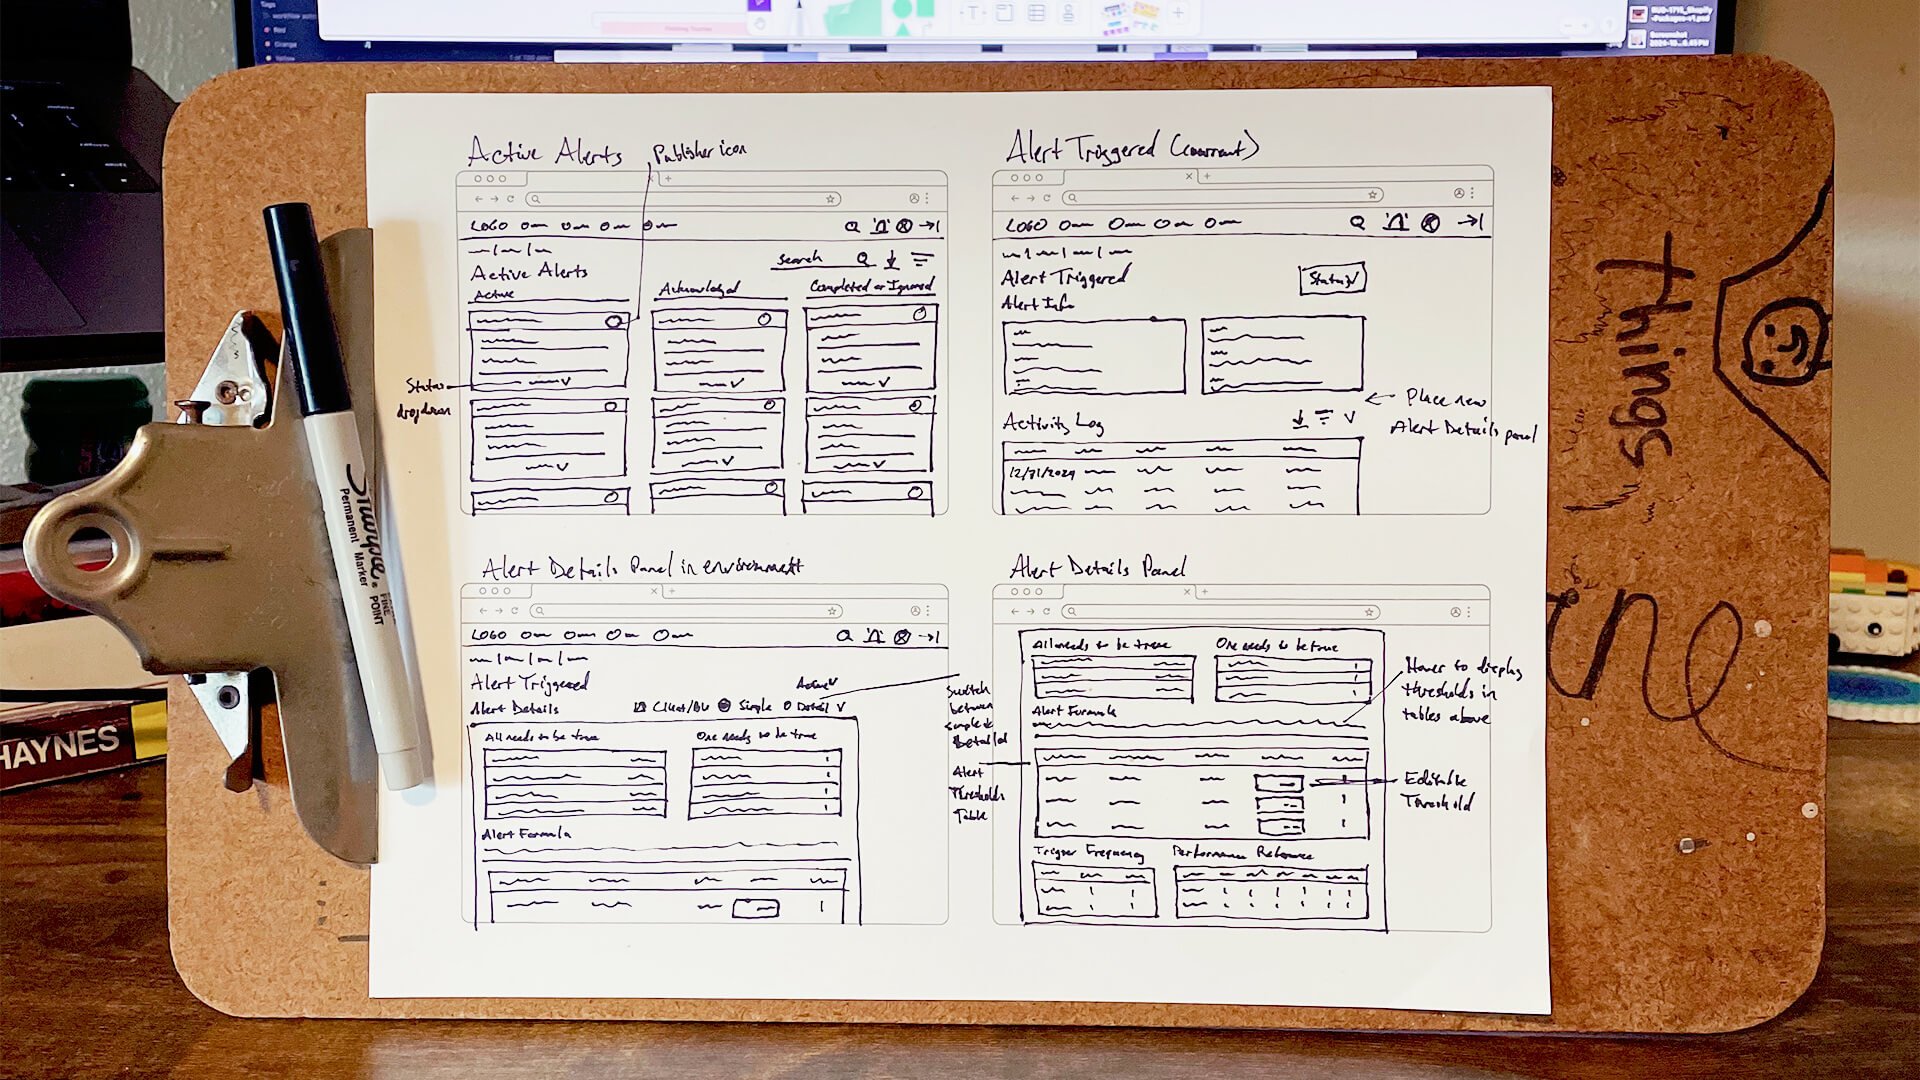 Active Alerts
Publisher icon
LOGO
Active Alerts
Search
Active
Acknowledged
Completed or Ignored
Status
dropdown
Alert Triggered (current)
LOGO
Alert Triggered
Status
Alert Info
Place new
Alert Details panel
Activity Log
12/31/2024
Alert Details Panel in environment
LOGO
Alert Triggered
Active
Alert Details
Client/BU
Simple
Detail
All needs to be true
One needs to be true
Alert Formula
Switch
between
simple &
Detailed
Alert
Thresholds
Table
Alert Details Panel
All needs to be true
One needs to be true
Alert Formula
Hover to display
thresholds in
tables above
Editable
Threshold
Trigger Frequency
Performance Reference
Sharpie
Permanent Marker
FINE
POINT
HAYNES
things
Tags
Red
Orange
Yellow
T